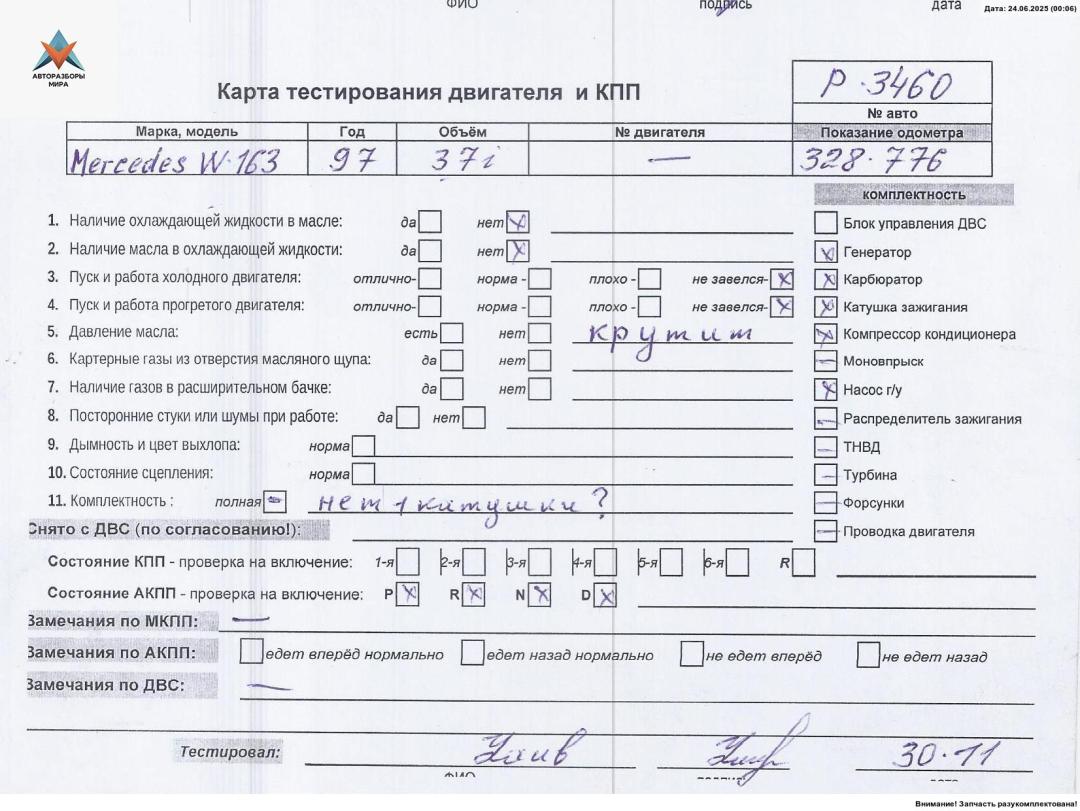 ФИО подпись дата Дата: 24.06.2025 (00:06)
АВТОРАЗБОРЫ
МИРА
Карта тестирования двигателя и КПП
Р·3460
№ авто
Марка, модель Год Объём № двигателя Показание одометра
Mercedes W·163 97 37i — 328·776
комплектность
1. Наличие охлаждающей жидкости в масле: да нет
Блок управления ДВС
2. Наличие масла в охлаждающей жидкости: да нет
Генератор
3. Пуск и работа холодного двигателя: отлично- норма - плохо - не завелся-
Карбюратор
4. Пуск и работа прогретого двигателя: отлично- норма - плохо - не завелся-
Катушка зажигания
5. Давление масла: есть нет крутит
Компрессор кондиционера
6. Картерные газы из отверстия масляного щупа: да нет
Моновпрыск
7. Наличие газов в расширительном бачке: да нет
Насос г/у
8. Посторонние стуки или шумы при работе: да нет
Распределитель зажигания
9. Дымность и цвет выхлопа: норма
ТНВД
10. Состояние сцепления: норма
Турбина
11. Комплектность : полная нет 1 катушки ?
Форсунки
Снято с ДВС (по согласованию!):
Проводка двигателя
Состояние КПП - проверка на включение: 1-я 2-я 3-я 4-я 5-я 6-я R
Состояние АКПП - проверка на включение: P R N D
Замечания по МКПП: —
Замечания по АКПП: едет вперёд нормально едет назад нормально не едет вперёд не едет назад
Замечания по ДВС: —
Тестировал: 30·11
ФИО подпись дата
Внимание! Запчасть разукомплектована!